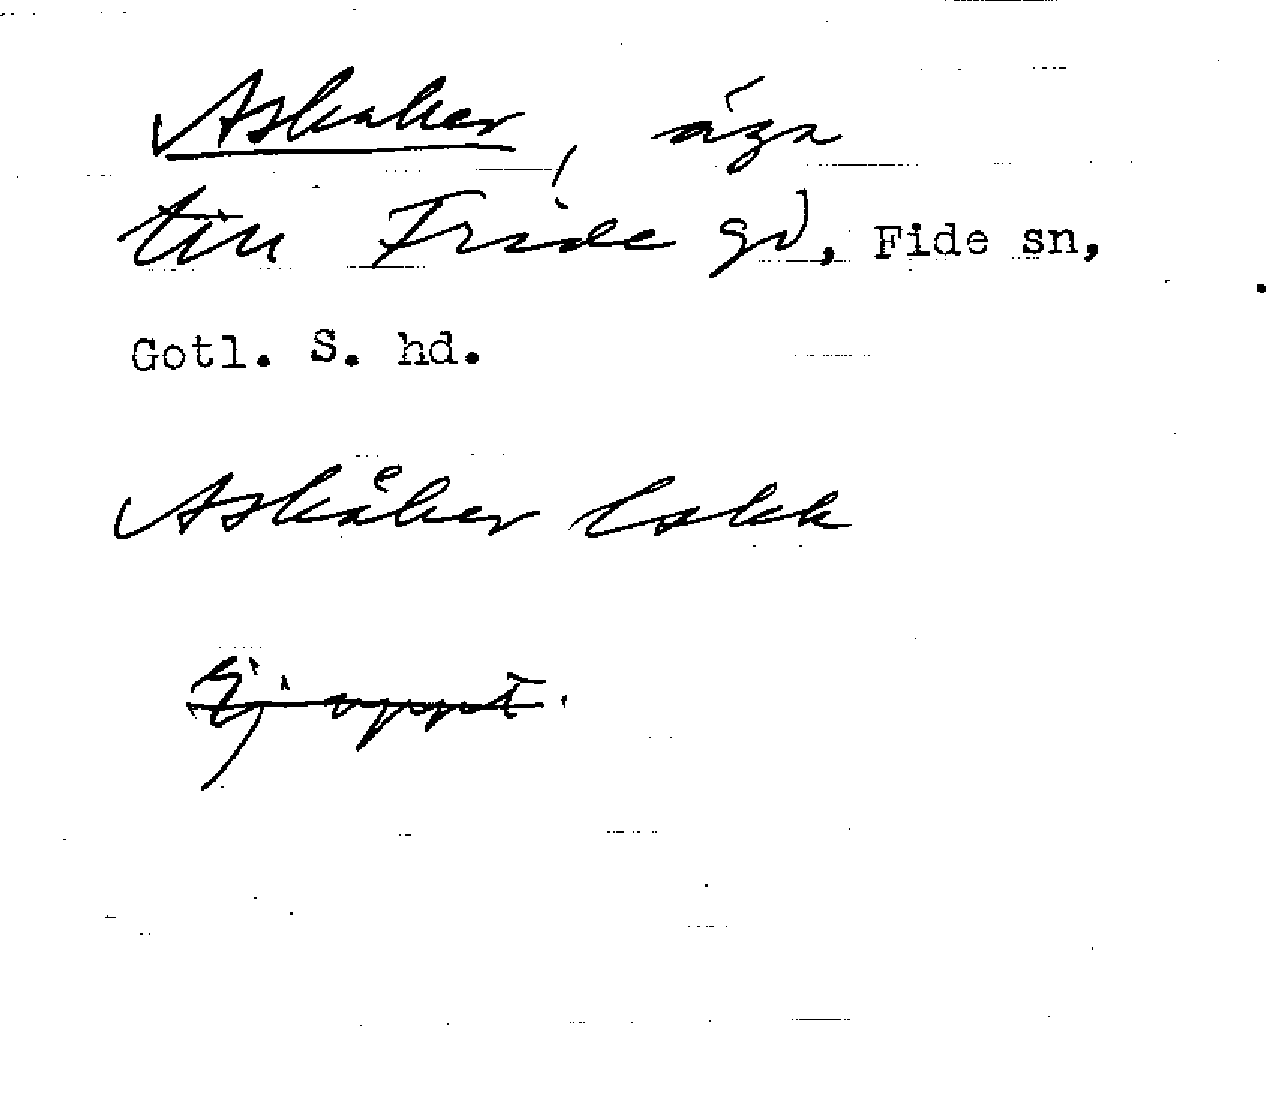 Askaker, äga
till Fride gd, Fide sn,
Gotl. S. hd.
Askåker Lokk
Ej uppt.